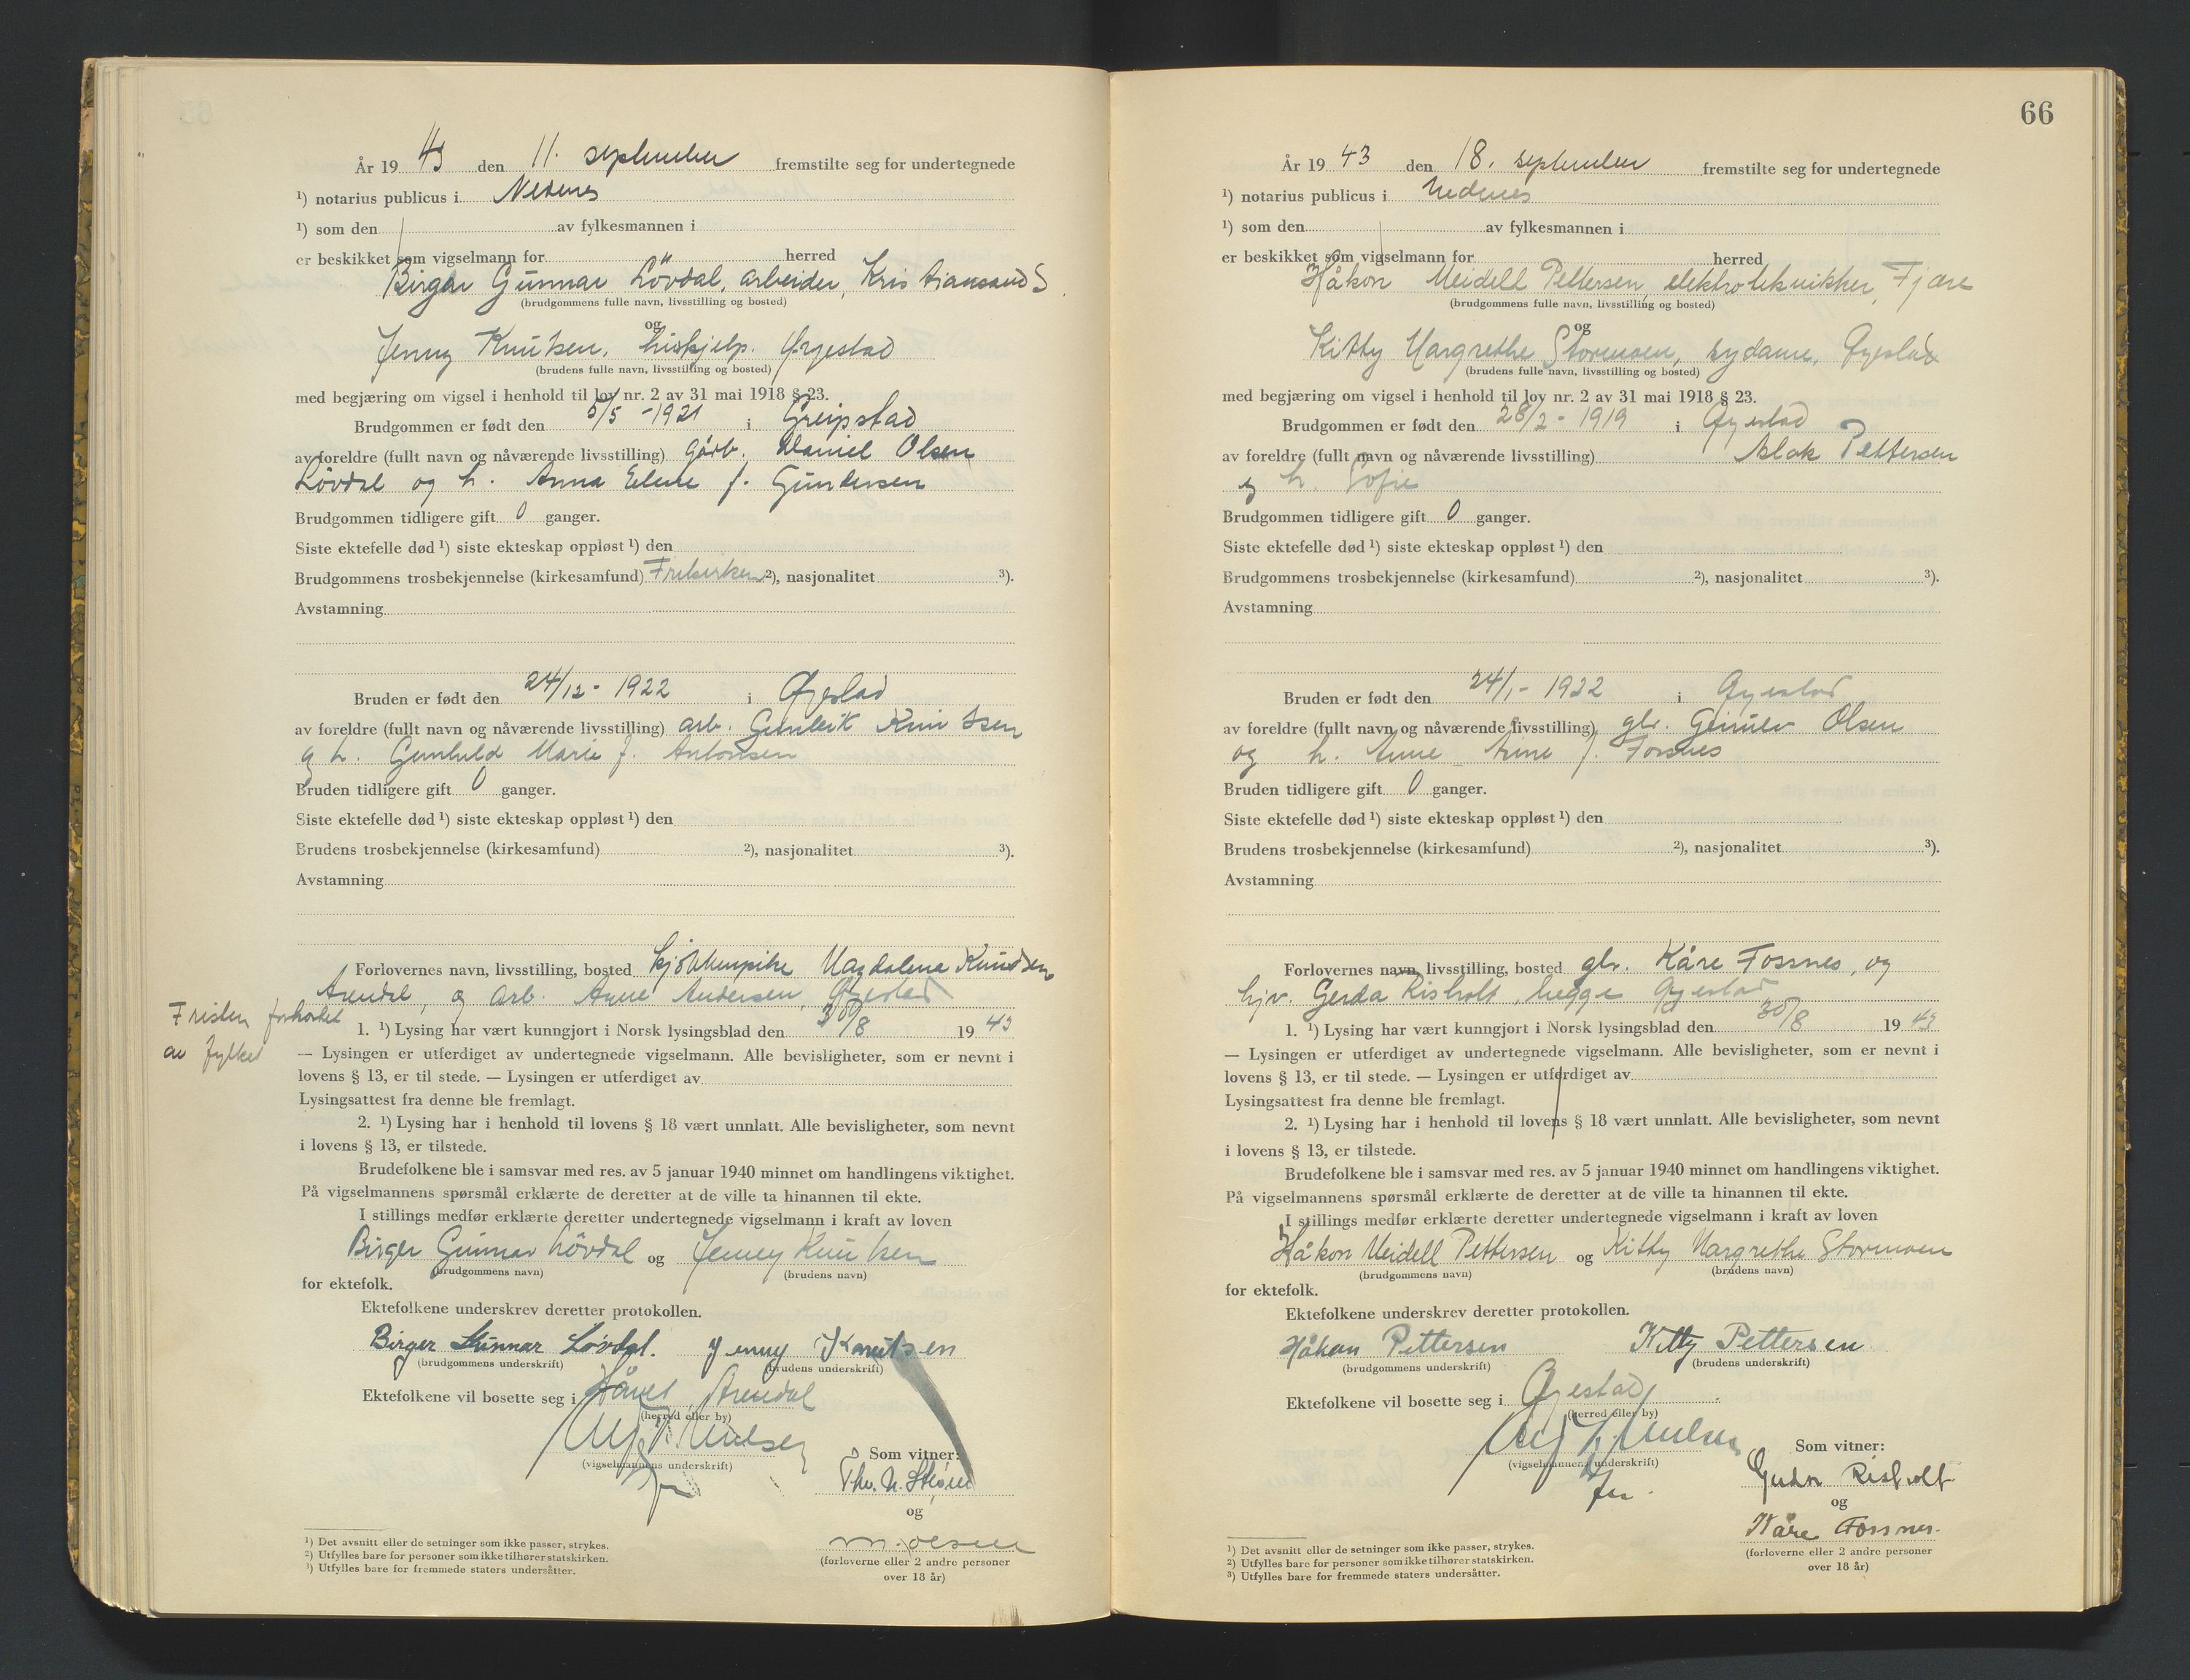 År 19 43 den 11. september fremstilte seg for undertegnede
¹) notarius publicus i Nedenes
¹) som den av fylkesmannen i
er beskikket som vigselmann for herred
Birger Gunnar Lövdal, arbeider, Kristiansand S
(brudgommens fulle navn, livsstilling og bosted)
og
Jenny Knutsen, huskjelp. Øyestad
(brudens fulle navn, livsstilling og bosted)
med begjæring om vigsel i henhold til lov nr. 2 av 31 mai 1918 § 23.
Brudgommen er født den 5/5 - 1921 i Greipstad
av foreldre (fullt navn og nåværende livsstilling) gårb. Daniel Olsen
Lövdal og h. Anna Elene f. Gundersen
Brudgommen tidligere gift 0 ganger.
Siste ektefelle død ¹) siste ekteskap oppløst ¹) den
Brudgommens trosbekjennelse (kirkesamfund) Frikirken ²), nasjonalitet ³).
Avstamning
Bruden er født den 24/12 - 1922 i Øyestad
av foreldre (fullt navn og nåværende livsstilling) arb. Gunleik Knutsen
og h. Gunhild Marie f. Antonsen
Bruden tidligere gift 0 ganger.
Siste ektefelle død ¹) siste ekteskap oppløst ¹) den
Brudens trosbekjennelse (kirkesamfund) ²), nasjonalitet ³).
Avstamning
Forlovernes navn, livsstilling, bosted kjökkenpike Magdalena Knudsen
Arendal, og arb. Arne Andersen, Øyestad
Fristen forkortet
av fylket
1. ¹) Lysing har vært kunngjort i Norsk lysingsblad den 30/8 19 43
— Lysingen er utferdiget av undertegnede vigselmann. Alle bevisligheter, som er nevnt i
lovens § 13, er til stede. — Lysingen er utferdiget av
Lysingsattest fra denne ble fremlagt.
2. ¹) Lysing har i henhold til lovens § 18 vært unnlatt. Alle bevisligheter, som nevnt
i lovens § 13, er tilstede.
Brudefolkene ble i samsvar med res. av 5 januar 1940 minnet om handlingens viktighet.
På vigselmannens spørsmål erklærte de deretter at de ville ta hinannen til ekte.
I stillings medfør erklærte deretter undertegnede vigselmann i kraft av loven
Birger Gunnar Lövdal og Jenny Knutsen
(brudgommens navn) (brudens navn)
for ektefolk.
Ektefolkene underskrev deretter protokollen.
Birger Gunnar Lövdal. Jenny Knutsen
(brudgommens underskrift) (brudens underskrift)
Ektefolkene vil bosette seg i Arendal
(herred eller by)
(vigselmannens underskrift)
Som vitner:
og
(forloverne eller 2 andre personer
over 18 år)
¹) Det avsnitt eller de setninger som ikke passer, strykes.
²) Utfylles bare for personer som ikke tilhører statskirken.
³) Utfylles bare for fremmede staters undersåtter.
66
År 19 43 den 18. september fremstilte seg for undertegnede
¹) notarius publicus i Nedenes
¹) som den av fylkesmannen i
er beskikket som vigselmann for herred
Håkon Meidell Pettersen, elektrotekniker, Fjære
(brudgommens fulle navn, livsstilling og bosted)
og
Kitty Margrethe Stormoen, sydame, Øyestad
(brudens fulle navn, livsstilling og bosted)
med begjæring om vigsel i henhold til lov nr. 2 av 31 mai 1918 § 23.
Brudgommen er født den 28/2 - 1919 i Øyestad
av foreldre (fullt navn og nåværende livsstilling) Aslak Pettersen
og h. Sofie
Brudgommen tidligere gift 0 ganger.
Siste ektefelle død ¹) siste ekteskap oppløst ¹) den
Brudgommens trosbekjennelse (kirkesamfund) ²), nasjonalitet ³).
Avstamning
Bruden er født den 24/1 - 1922 i Øyestad
av foreldre (fullt navn og nåværende livsstilling) gbr. Olsen
og h. Anne f. Fossnes
Bruden tidligere gift 0 ganger.
Siste ektefelle død ¹) siste ekteskap oppløst ¹) den
Brudens trosbekjennelse (kirkesamfund) ²), nasjonalitet ³).
Avstamning
Forlovernes navn, livsstilling, bosted gbr. Kåre Fossnes, og
hjv. Gerda Risholt, begge Øyestad
1. ¹) Lysing har vært kunngjort i Norsk lysingsblad den 30/8 19 43
— Lysingen er utferdiget av undertegnede vigselmann. Alle bevisligheter, som er nevnt i
lovens § 13, er til stede. — Lysingen er utferdiget av
Lysingsattest fra denne ble fremlagt.
2. ¹) Lysing har i henhold til lovens § 18 vært unnlatt. Alle bevisligheter, som nevnt
i lovens § 13, er tilstede.
Brudefolkene ble i samsvar med res. av 5 januar 1940 minnet om handlingens viktighet.
På vigselmannens spørsmål erklærte de deretter at de ville ta hinannen til ekte.
I stillings medfør erklærte deretter undertegnede vigselmann i kraft av loven
Håkon Meidell Pettersen og Kitty Margrethe Stormoen
(brudgommens navn) (brudens navn)
for ektefolk.
Ektefolkene underskrev deretter protokollen.
Håkon Pettersen Kitty Pettersen
(brudgommens underskrift) (brudens underskrift)
Ektefolkene vil bosette seg i Øyestad
(herred eller by)
(vigselmannens underskrift)
Som vitner:
Gerda Risholt
og
Kåre Fossnes.
(forloverne eller 2 andre personer
over 18 år)
¹) Det avsnitt eller de setninger som ikke passer, strykes.
²) Utfylles bare for personer som ikke tilhører statskirken.
³) Utfylles bare for fremmede staters undersåtter.